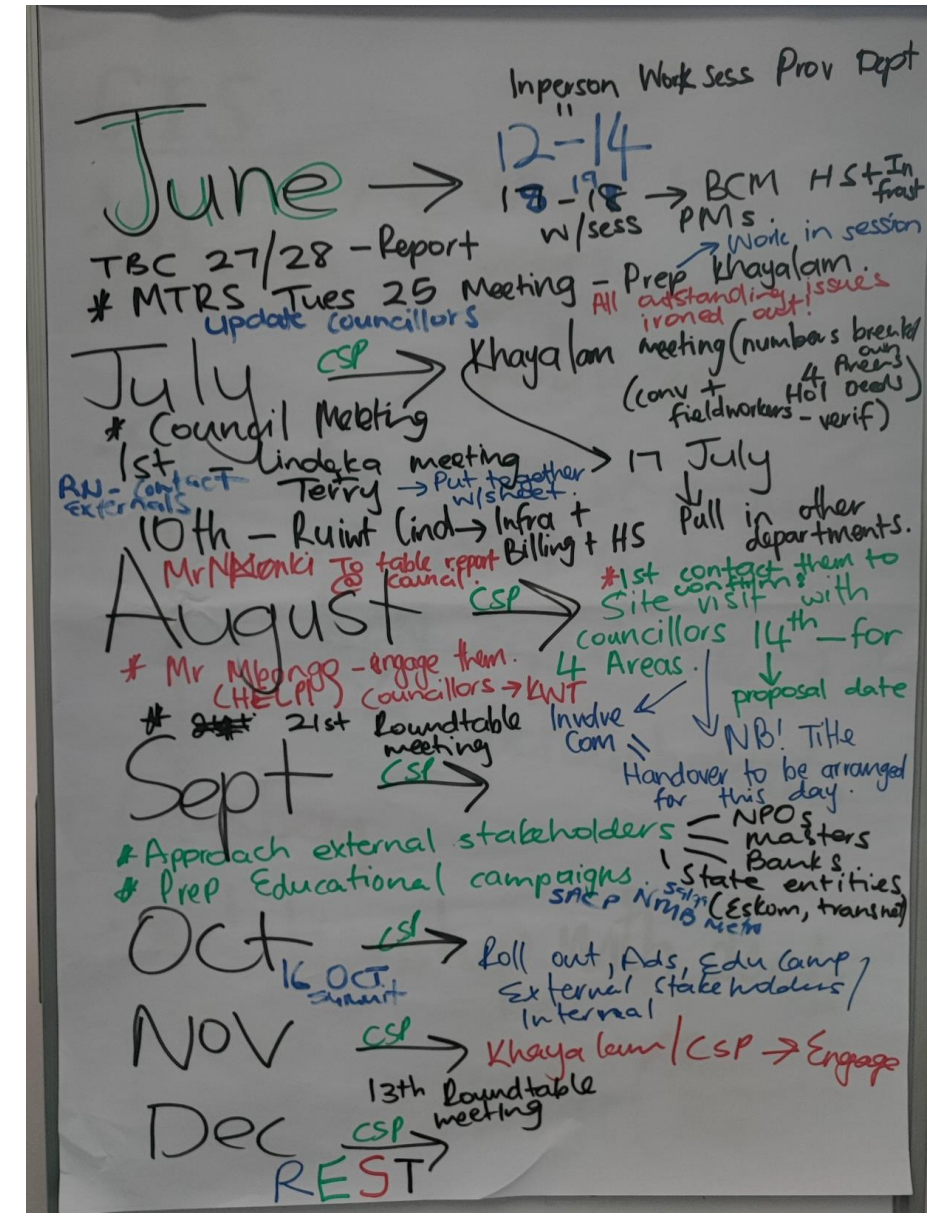 Inperson Work sess Prov Dept
June → 12-14
18-19 → BCM HS + Infrast
w/sess PMs.
TBC 27/28 - Report
Work in session
* MTRS Tues 25 Meeting - Prep Khayalam.
update councillors
All outstanding issues
ironed out!
July CSP → Khayalam meeting (numbers breakdown
4 Areas
(conv + Hol Deeds)
fieldworkers - verif)
* Council Meeting
1st - Lindeka meeting
Terry → Put together
w/sheet.
RN - Contact
Externals
→ 17 July
Pull in other
departments.
10th - Lind → Infra +
Billing + HS
To table report
@ council.
August CSP →
*1st contact them to
confirm?
Site visit with
councillors 14th - for
4 Areas.
proposal date
* Mr - engage them.
(HELP) councillors → KWT
* 21st Roundtable
meeting
Involve
Com
NB! Title
Handover to be arranged
for this day.
Sept CSP →
* Approach external stakeholders
NPOs
masters
Banks.
State entities
(Eskom, transnet)
* Prep Educational campaigns.
SAEP NMB Metro
Oct CSP → Roll out, Ads, Edu Camp
16 OCT
Summit
External Stakeholders/
Internal
Nov CSP → Khayalam/CSP → Engage
13th Roundtable
meeting
Dec CSP →
REST